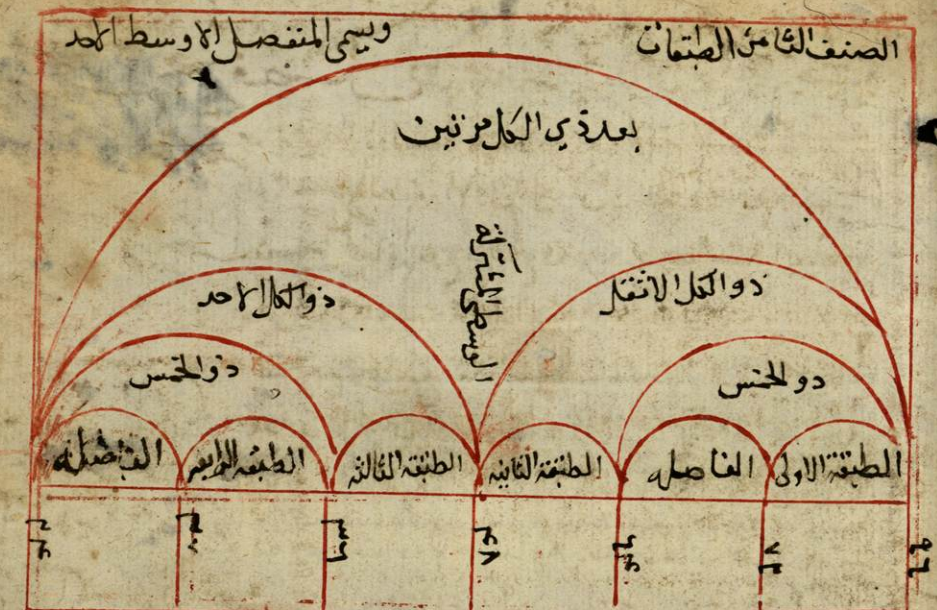 الصنف الثامن الطبقات ويسمى المنفصل الاوسط الاحد
بعد ذي الكل مرتين
الوسطى المشتركة
ذو الكل الاثقل ذو الكل الاحد
دو الخمس ذو الخمس
الطبقة الاولى الفاصله الطبقة الثانيه الطبقة الثالثة الطبقه الرابعه الفاصله
٩٦ ٧٢ ٦٤ ٤٨ ٣٦ ٢٤